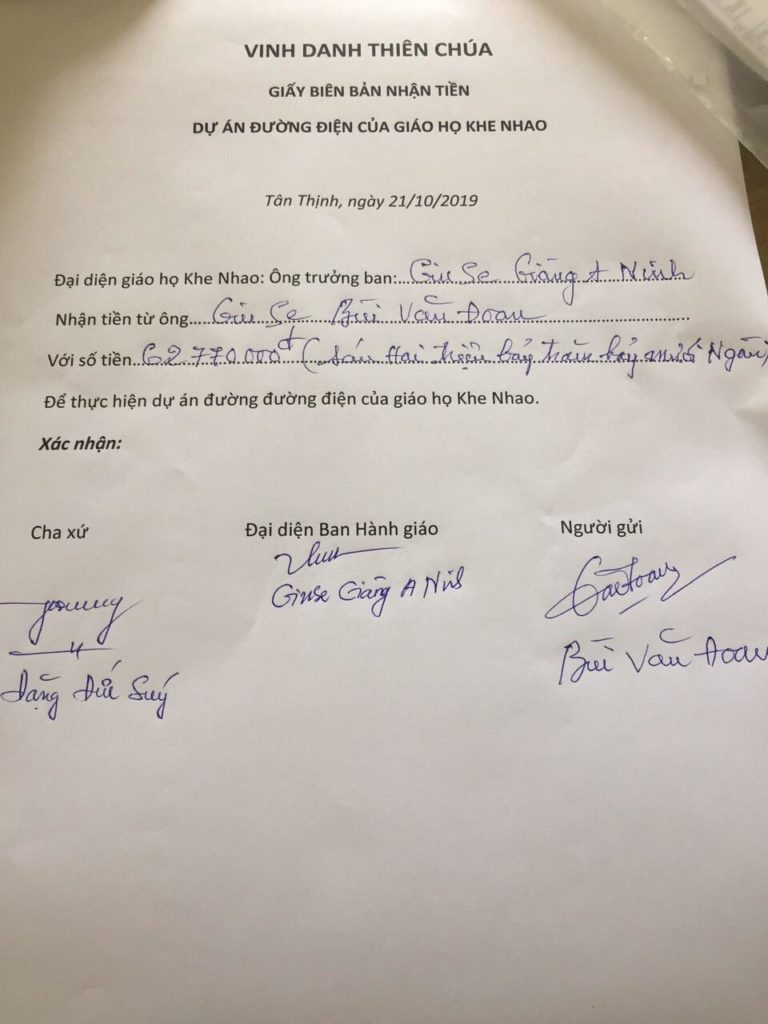 VINH DANH THIÊN CHÚA
GIẤY BIÊN BẢN NHẬN TIỀN
DỰ ÁN ĐƯỜNG ĐIỆN CỦA GIÁO HỌ KHE NHAO
Tân Thịnh, ngày 21/10/2019
Đại diện giáo họ Khe Nhao: Ông trưởng ban: Giu Se Giàng A Ninh
Nhận tiền từ ông Giu Se Bùi Văn Đoan
Với số tiền 62.770.000đ (Sáu Hai triệu bảy trăm bảy mươi Ngàn)
Để thực hiện dự án đường đường điện của giáo họ Khe Nhao.
Xác nhận:
Cha xứ Đại diện Ban Hành giáo Người gửi
Giuse Giàng A Ninh
Bùi Văn Đoan
Đặng Đức Suý